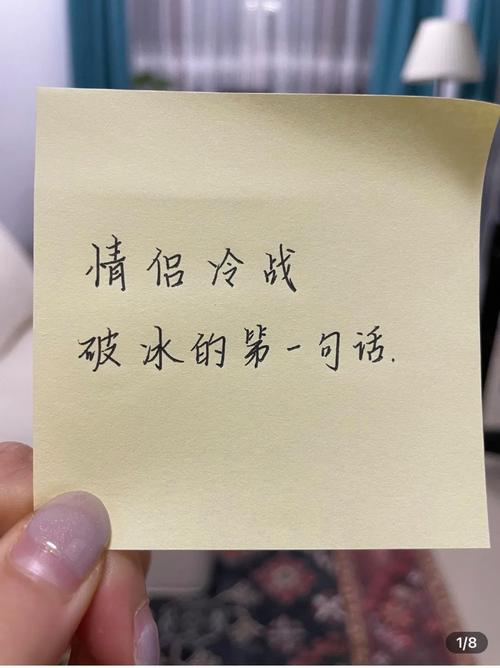 情侣冷战
破冰的第一句话.
1/8